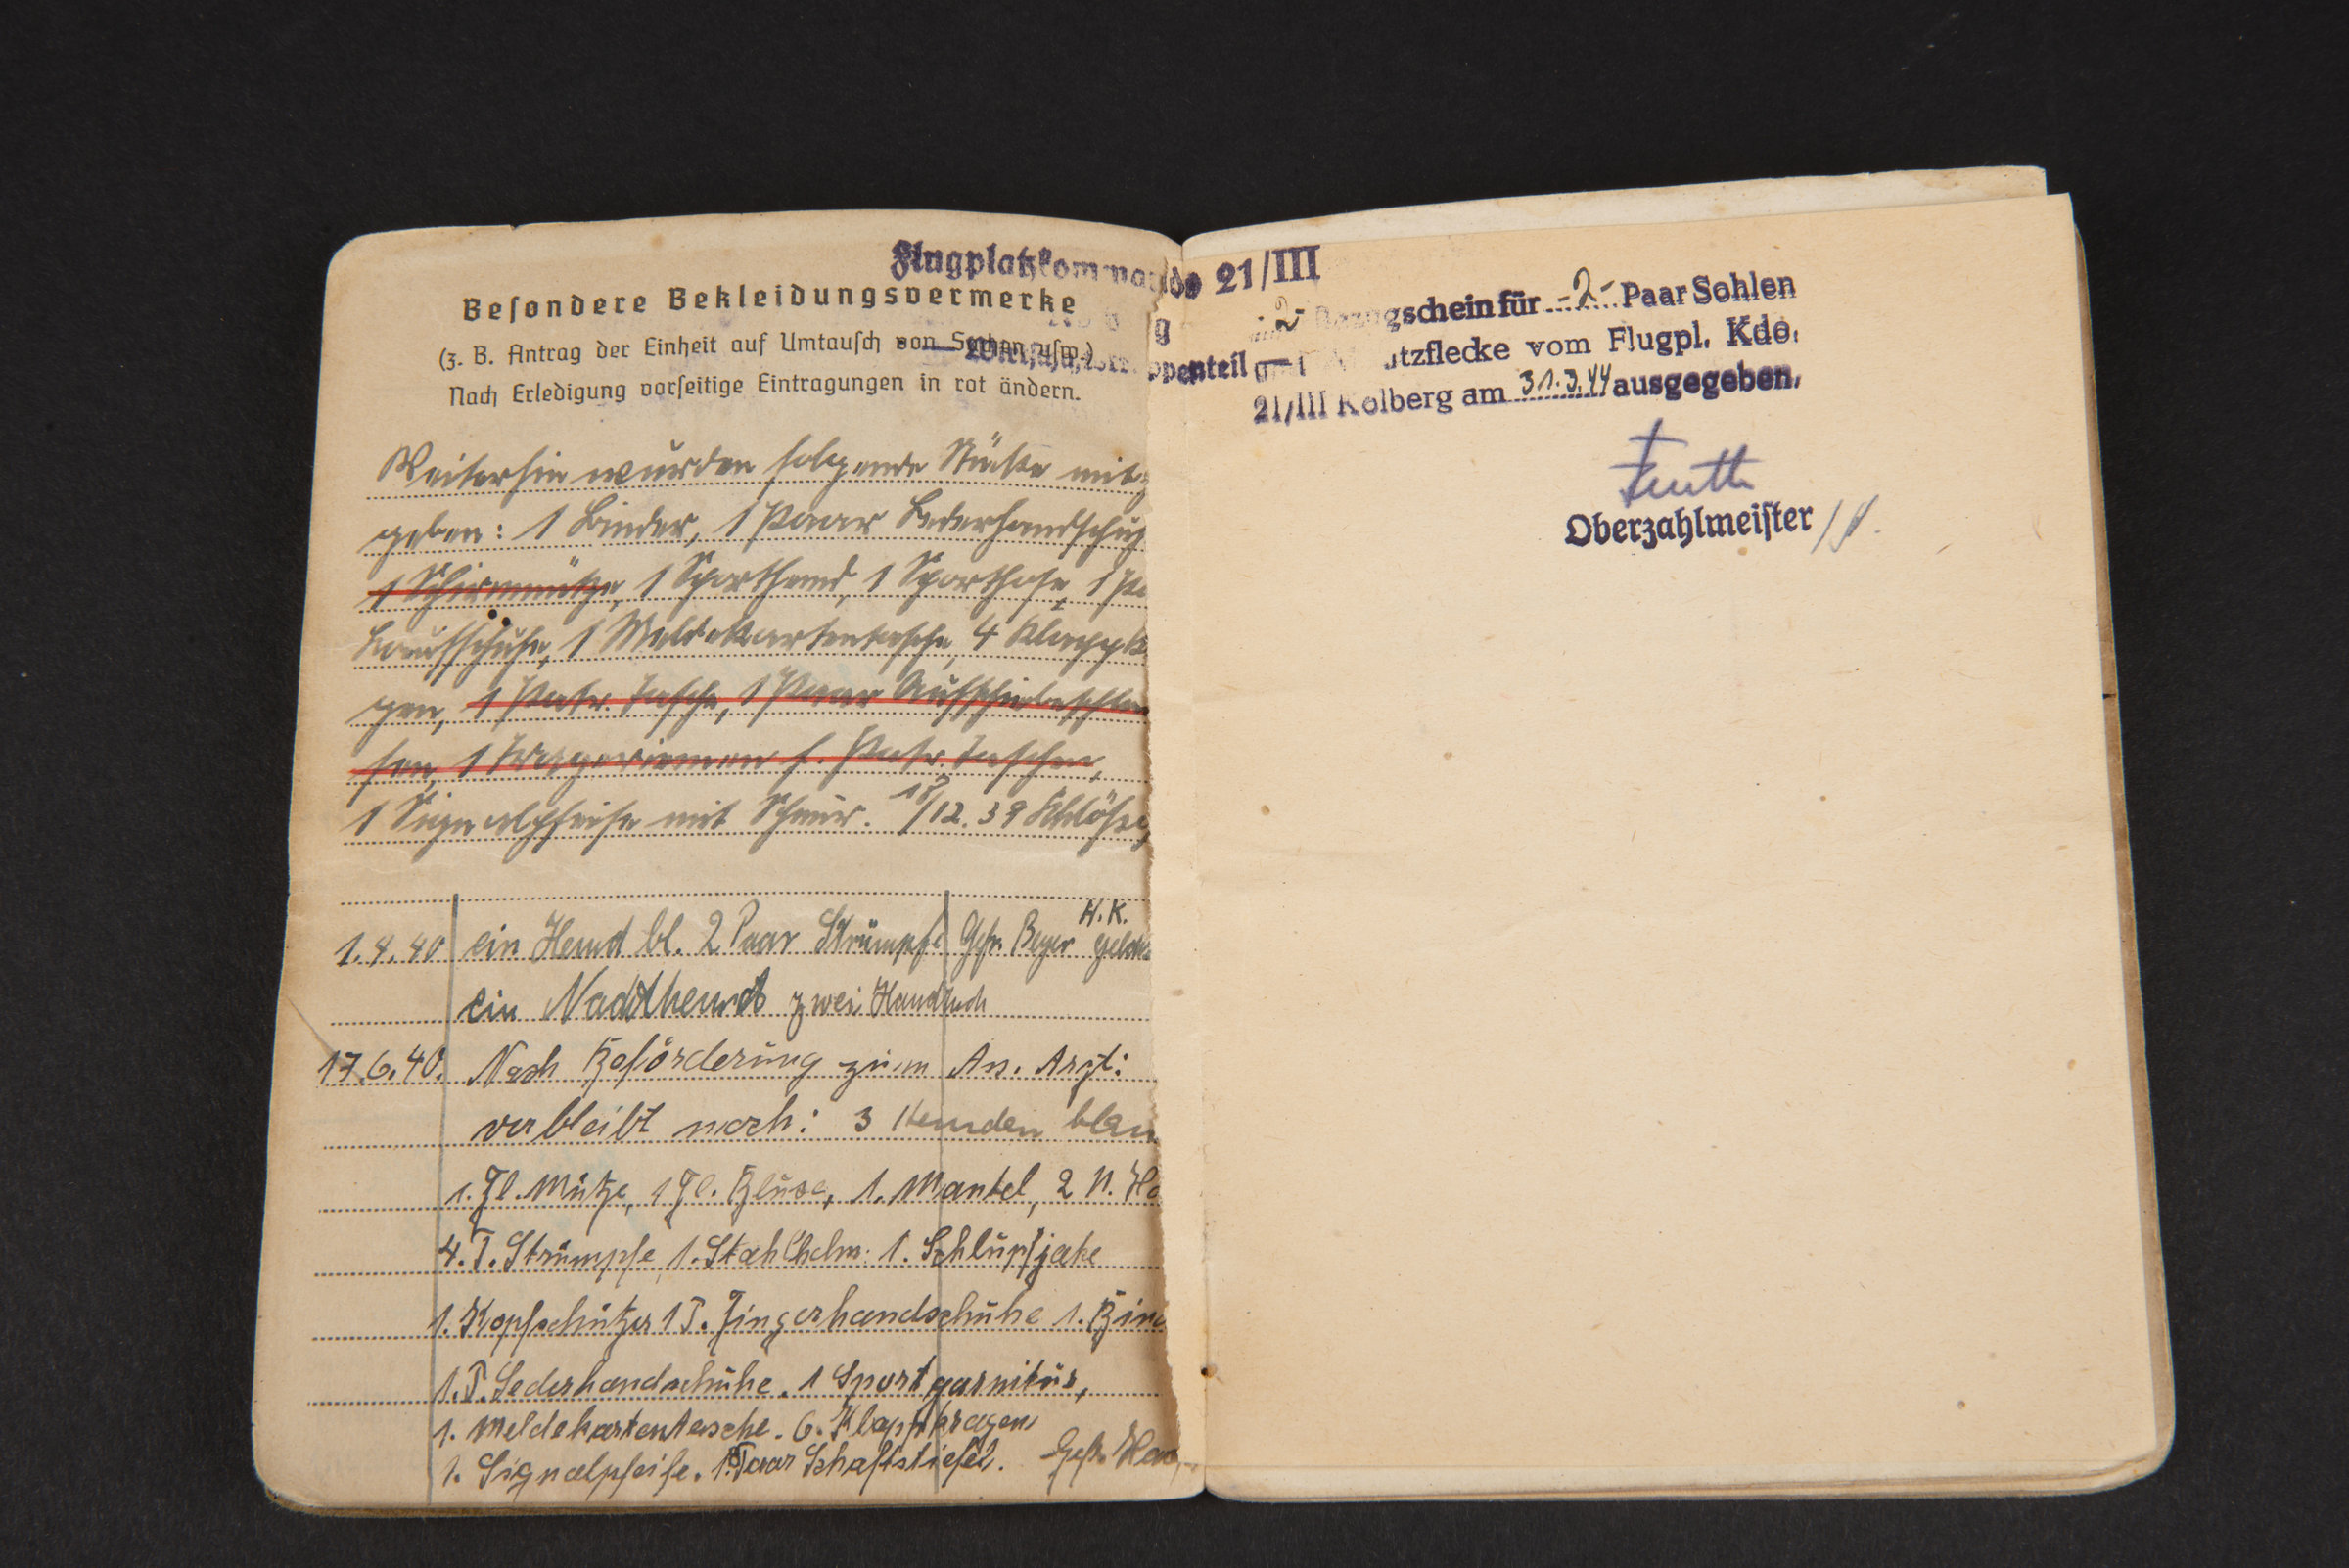 Flugplatzkommando 21/III
Besondere Bekleidungsvermerke
(z. B. Antrag der Einheit auf Umtausch von Sachen usw.)
Nach Erledigung vorseitige Eintragungen in rot ändern.
Weiterhin wurden folgende Stücke mitge-
geben: 1 Binder, 1 Paar Lederhandschuh
1 Schirmmütze, 1 Sporthemd, 1 Sporthose, 1 Pa
Laufschuhe, 1 Meldekartentasche, 4 Klappk
gen, 1 Patr. Tasche, 1 Paar Aufschiebeschlau
fen, 1 Trageriemen f. Patr. Taschen,
1 Signalpfeife mit Schnur. /12. 39
1.4.40 ein Hemd bl. 2 Paar Strümpfe Gefr. Beyer H.K.
ein Nachthemd zwei Handtuch
17.6.40. Nach Beförderung zum Ass. Arzt:
verbleibt noch: 3 Hemden blau
1. Fl. Mütze, 1 Fl. Bluse, 1. Mantel, 2 N. He
4. P. Strümpfe, 1. Stahlhelm. 1. Schlupfjake
1. Kopfschützer 1 P. Fingerhandschuhe 1. Bind
1. P. Lederhandschuhe. 1 Sportgarnitur,
1. Meldekartentasche. 6. Klappkragen,
1. Signalpfeife. 1. Paar Schaftstiefel. Gefr.
-2- Bezugschein für -2- Paar Sohlen
tzflecke vom Flugpl. Kdo.
21/III Kolberg am 31.3.44 ausgegeben.
Oberzahlmeister